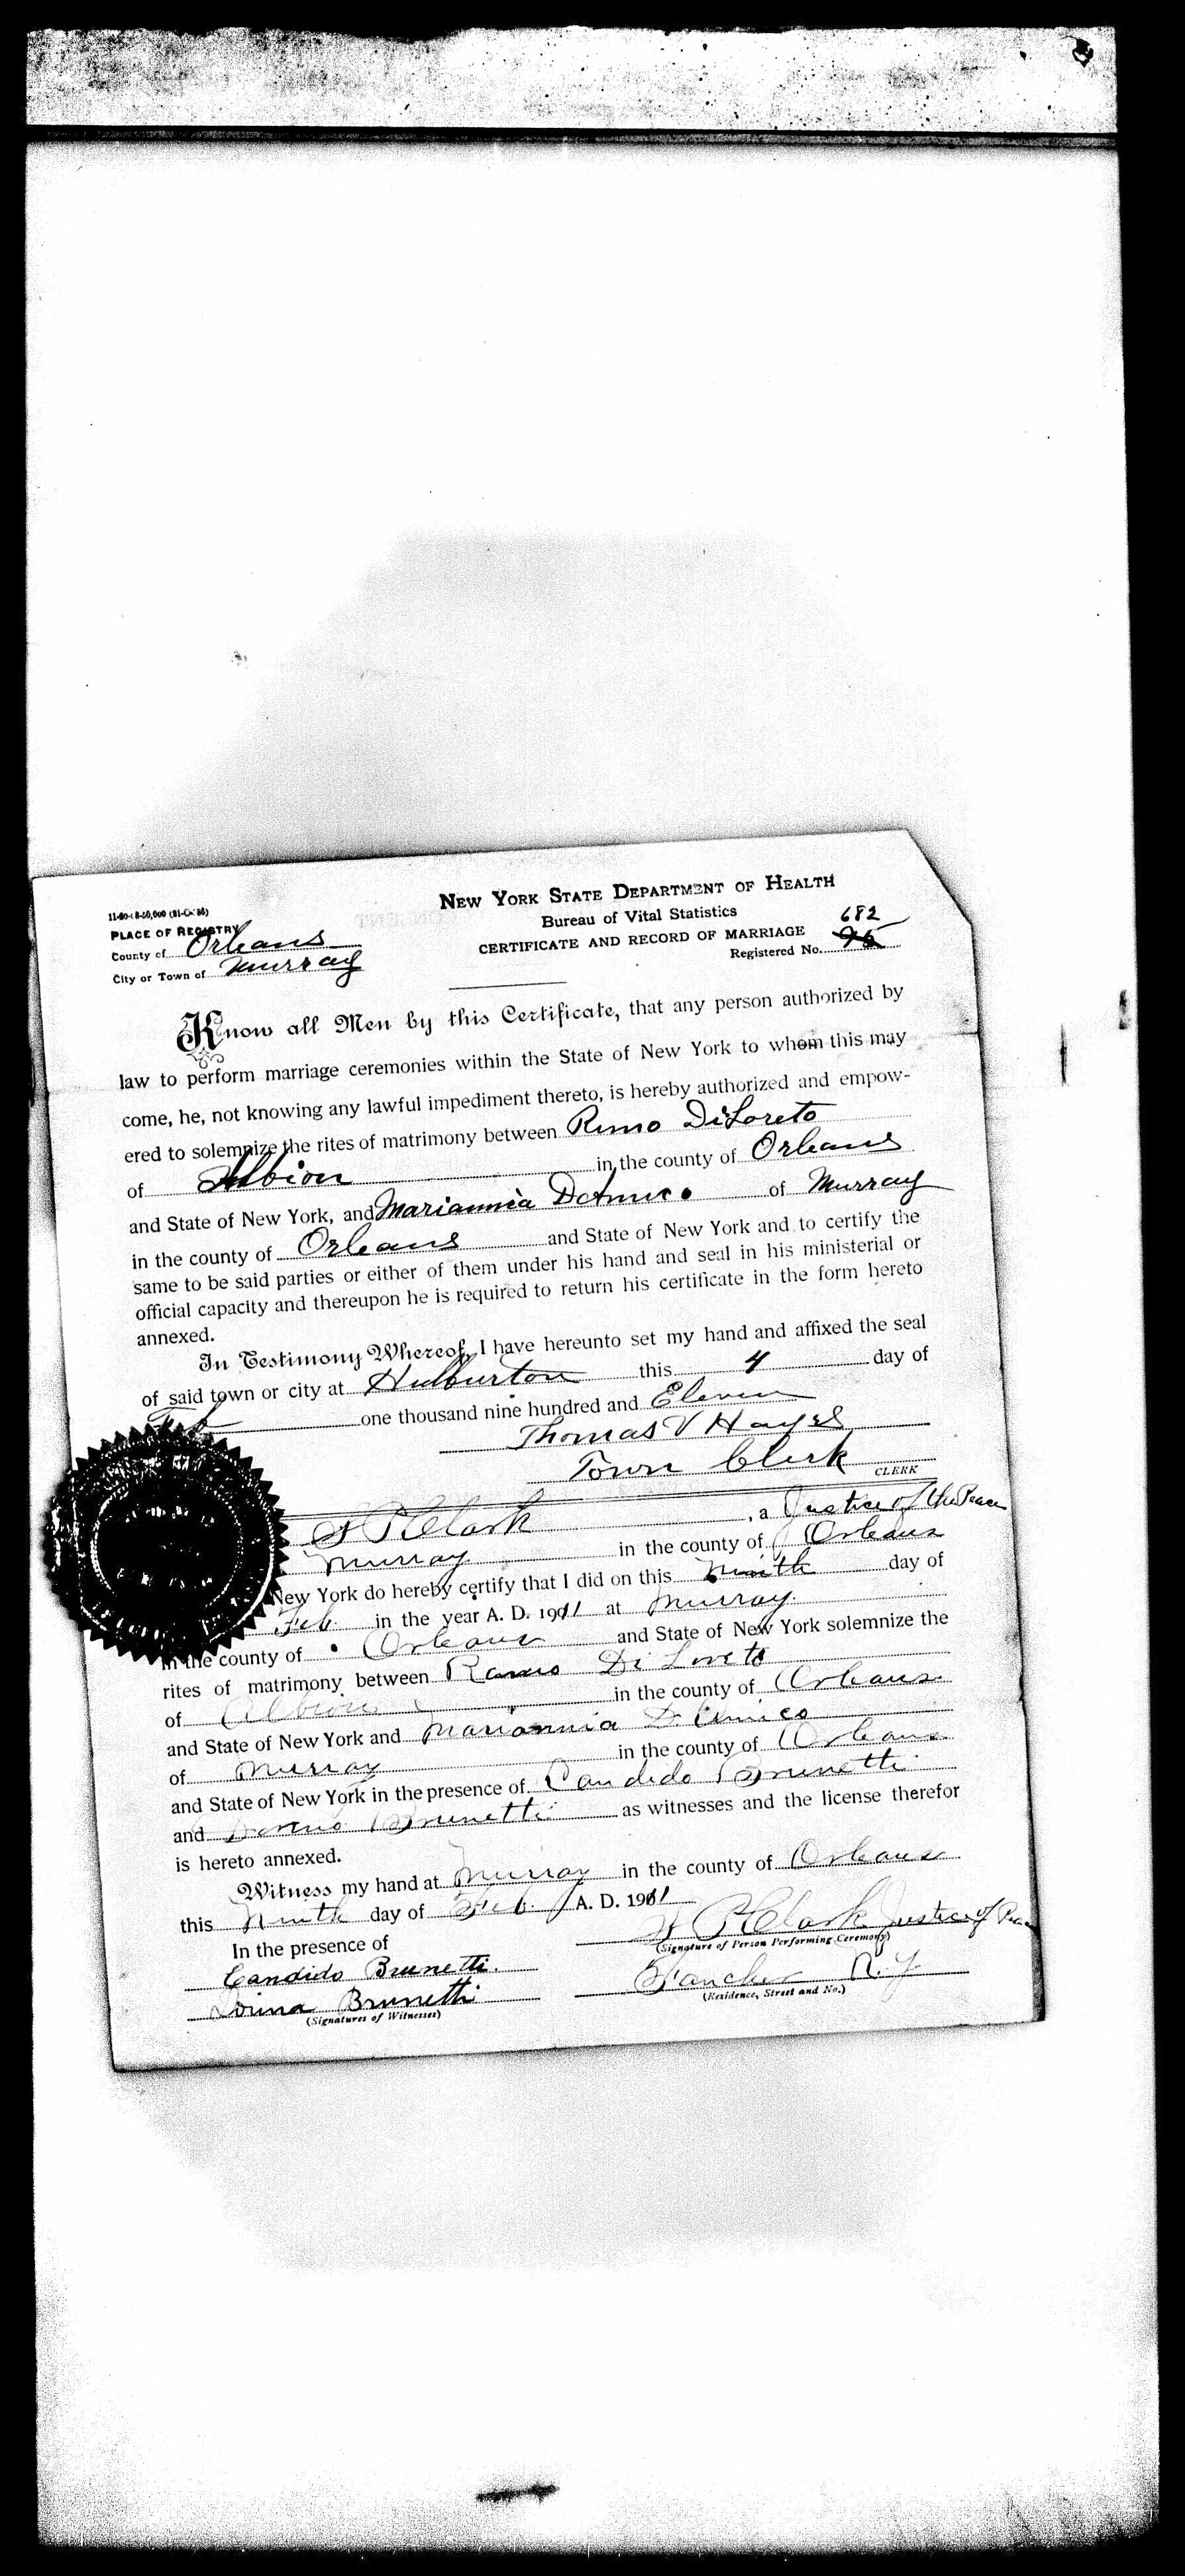 NEW YORK STATE DEPARTMENT OF HEALTH
Bureau of Vital Statistics
CERTIFICATE AND RECORD OF MARRIAGE
682
Registered No.
PLACE OF REGISTRY
County of Orleans
City or Town of Murray
Know all Men by this Certificate, that any person authorized by
law to perform marriage ceremonies within the State of New York to whom this may
come, he, not knowing any lawful impediment thereto, is hereby authorized and empow-
ered to solemnize the rites of matrimony between Remo DiLoreto
of Albion in the county of Orleans
and State of New York, and Mariannia DeAmico of Murray
in the county of Orleans and State of New York and to certify the
same to be said parties or either of them under his hand and seal in his ministerial or
official capacity and thereupon he is required to return his certificate in the form hereto
annexed.
In Testimony Whereof, I have hereunto set my hand and affixed the seal
of said town or city at Hulburton this 4 day of
Feb one thousand nine hundred and Eleven
Thomas V Hayes
Town Clerk CLERK
P Clark, a Justice of the Peace
Murray in the county of Orleans
New York do hereby certify that I did on this ninth day of
Feb in the year A. D. 1911 at Murray
in the county of Orleans and State of New York solemnize the
rites of matrimony between Di Loreto
of Albion in the county of Orleans
and State of New York and Mariannia D. Amico
of Murray in the county of Orleans
and State of New York in the presence of Candido Brunetti
and Brunetti as witnesses and the license therefor
is hereto annexed.
Witness my hand at Murray in the county of Orleans
this Ninth day of Feb. A. D. 1911
In the presence of
P Clark Justice of Peace
(Signature of Person Performing Ceremony)
Candido Brunetti.
Fancher N. Y.
(Residence, Street and No.)
Brunetti
(Signatures of Witnesses)